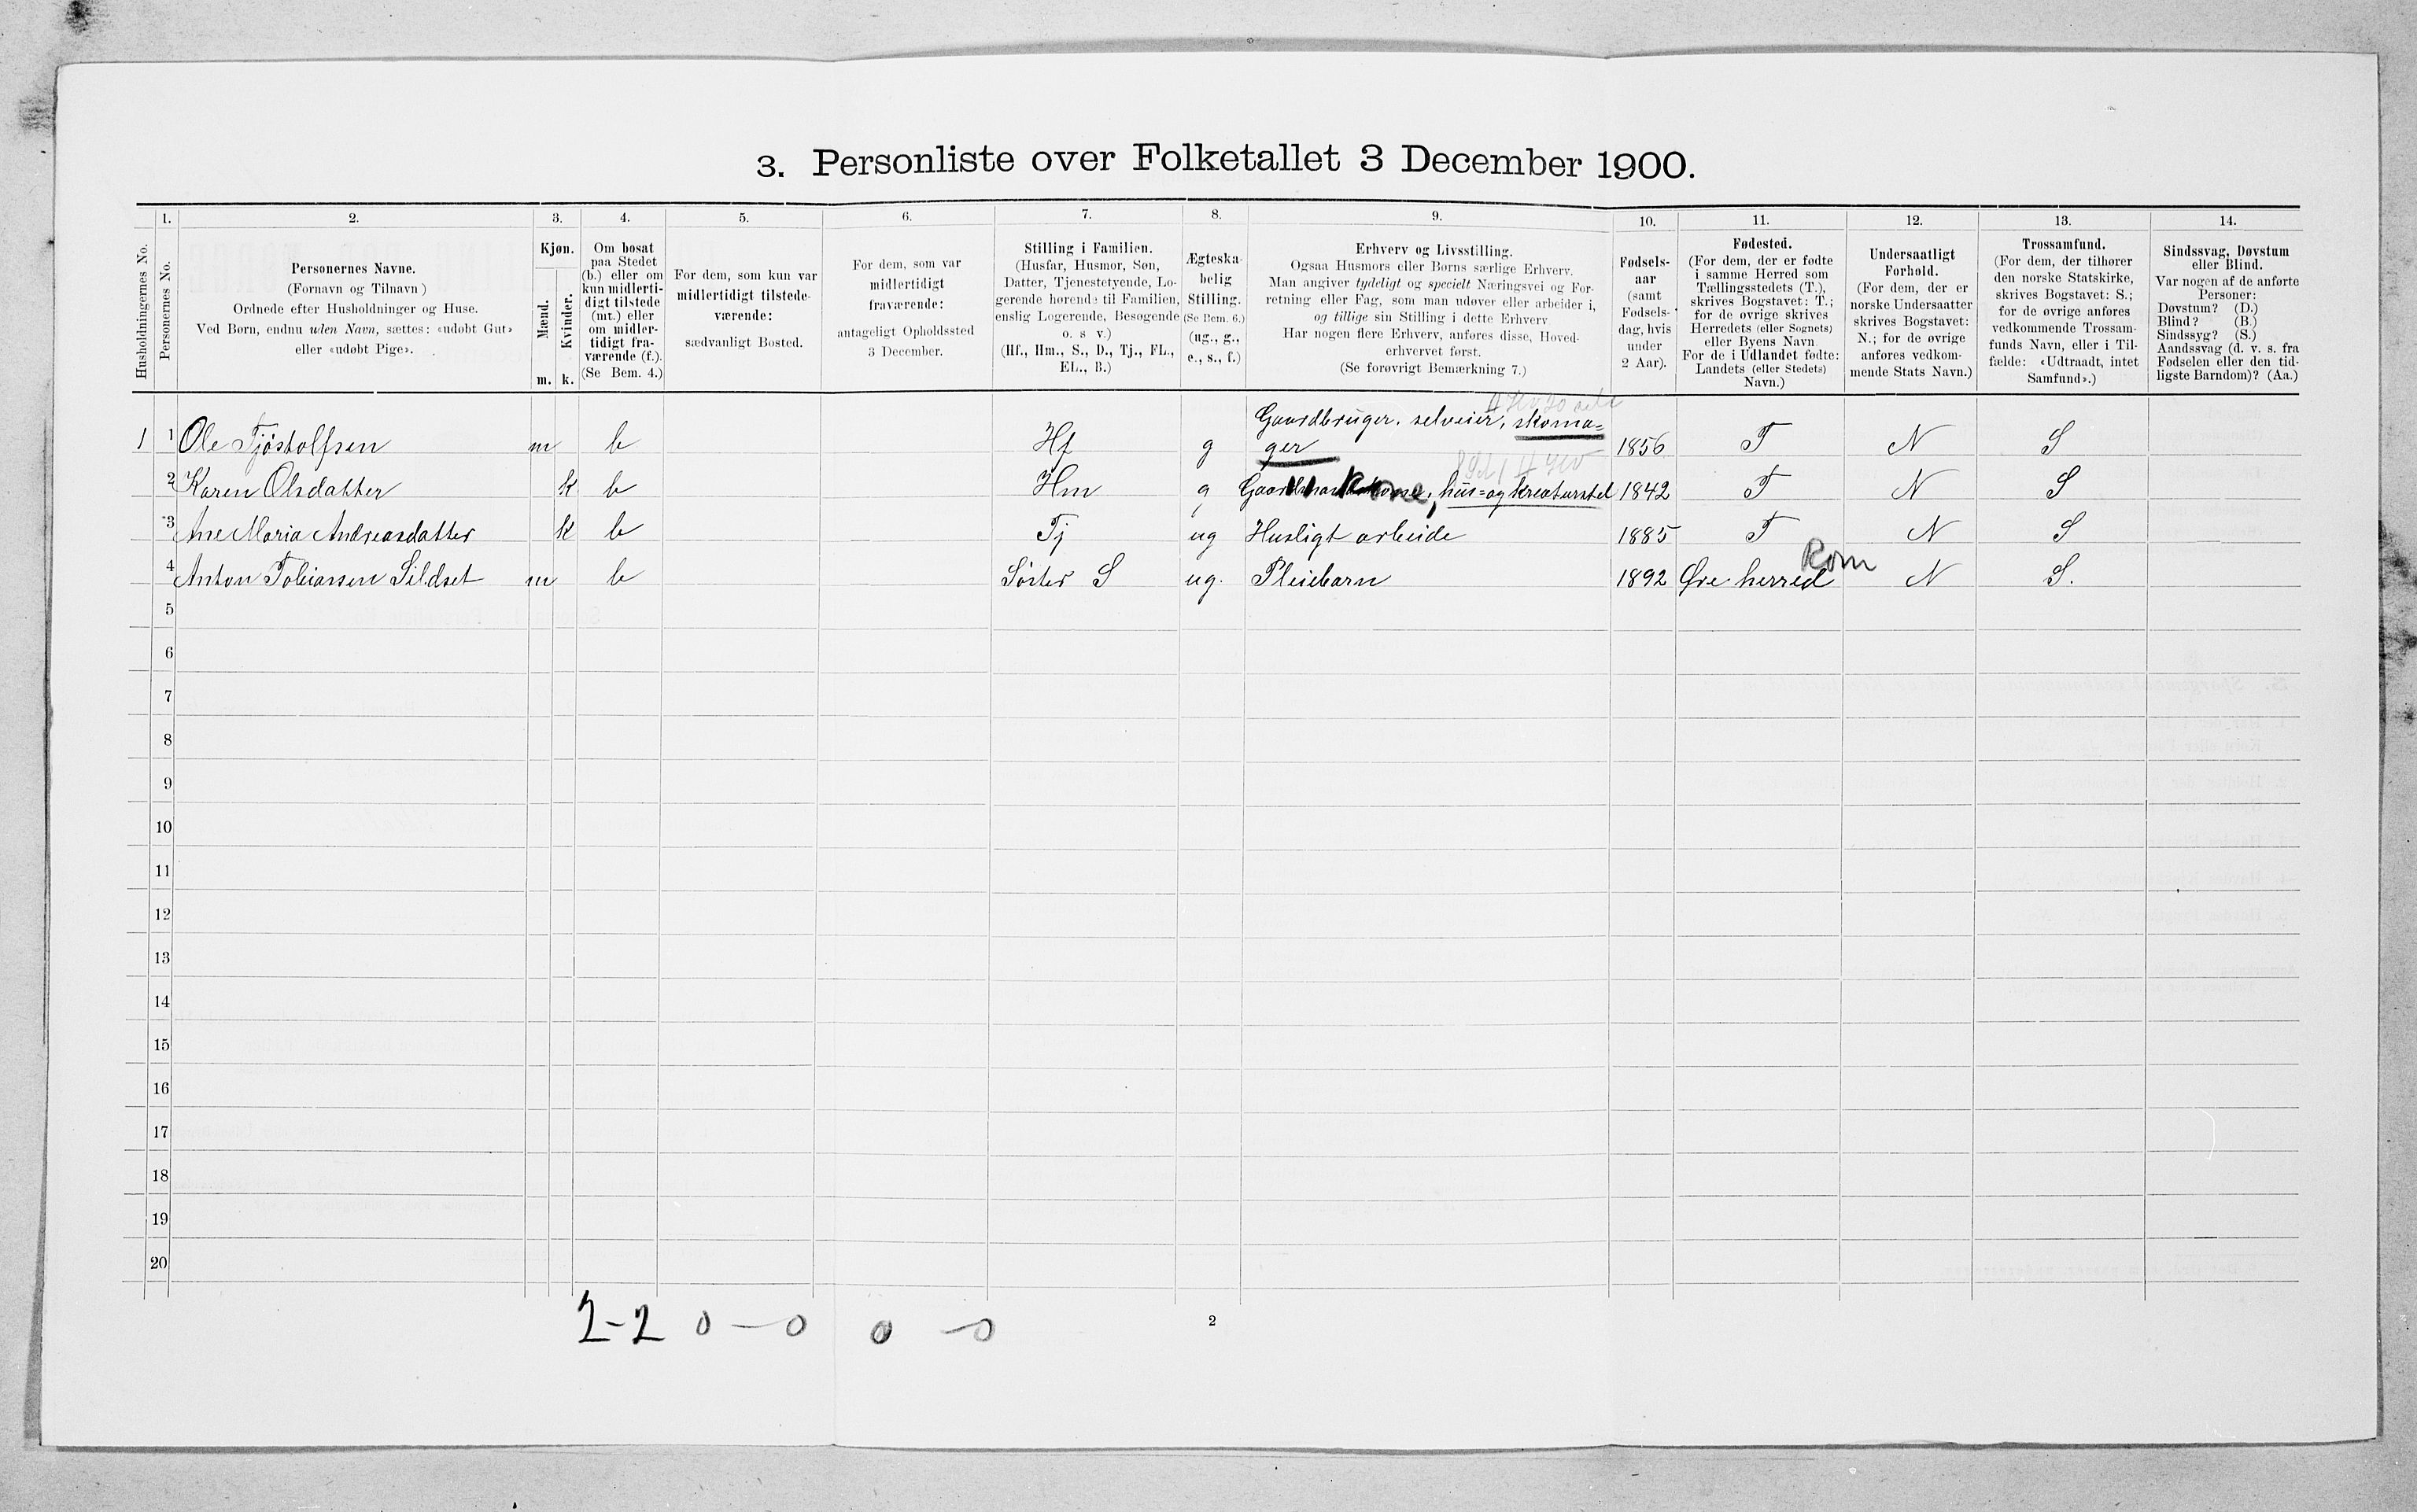 3. Personliste over Folketallet 3 December 1900.
1. 2. 3. 4. 5. 6. 7. 8. 9. 10. 11. 12. 13. 14.
Husholdningernes No.
Personernes No.
Personernes Navne.
(Fornavn og Tilnavn)
Ordnede efter Husholdninger og Huse.
Ved Børn, endnu uden Navn, sættes: «udøbt Gut»
eller «udøbt Pige».
Kjøn.
Mænd.
Kvinder.
m. k.
Om bosat
paa Stedet
(b.) eller om
kun midlerti-
digt tilstede
(mt.) eller
om midler-
tidigt fra-
værende (f.).
(Se Bem. 4.)
For dem, som kun var
midlertidigt tilstede-
værende:
sædvanligt Bosted.
For dem, som var
midlertidigt
fraværende:
antageligt Opholdssted
3 December.
Stilling i Familien.
(Husfar, Husmor, Søn,
Datter, Tjenestetyende, Lo-
gerende hørende til Familien,
enslig Logerende, Besøgende
o. s v.)
(Hf., Hm., S., D., Tj., FL.,
EL., B.)
Ægteska-
belig
Stilling.
(Se Bem. 6.)
(ug., g.,
e., s., f.)
Erhverv og Livsstilling.
Ogsaa Husmors eller Børns særlige Erhverv.
Man angiver tydeligt og specielt Næringsvei og For-
retning eller Fag, som man udøver eller arbeider i,
og tillige sin Stilling i dette Erhverv
Har nogen flere Erhverv, anføres disse, Hoved-
erhvervet først.
(Se forøvrigt Bemærkning 7.)
Fødsels-
aar
(samt
Fødsels-
dag, hvis
under
2 Aar).
Fødested.
(For dem, der er fødte
i samme Herred som
Tællingsstedets (T.),
skrives Bogstavet: T.;
for de øvrige skrives
Herredets (eller Sognets)
eller Byens Navn
For de i Udlandet fødte:
Landets (eller Stedets)
Navn.)
Undersaatligt
Forhold.
(For dem, der er
norske Undersaatter
skrives Bogstavet:
N.; for de øvrige
anføres vedkom-
mende Stats Navn.)
Trossamfund.
(For dem, der tilhører
den norske Statskirke,
skrives Bogstavet: S.;
for de øvrige anføres
vedkommende Trossam-
funds Navn, eller i Til-
fælde: «Udtraadt, intet
Samfund».)
Sindssvag, Døvstum
eller Blind.
Var nogen af de anførte
Personer:
Døvstum? (D.)
Blind? (B.)
Sindssyg? (S.)
Aandssvag (d. v. s. fra
Fødselen eller den tid-
ligste Barndom)? (Aa.)
1 1 Ole Tjøstolfsen m b Hf g Gaardbruger. selveier, skoma=
ger 1856 T N S
2 Karen Olsdatter k b Hm g kone, hus= og kreaturstel 1842 T N S
3 Ane Maria Andreasdatter k b Tj ug Husligt arbeide 1885 T N S
4 Anton Tobiassen Sildset m b Søster S ug. Pleiebarn 1892 Øre herred Rom N S.
5
6
7
8
9
10
11
12
13
14
15
16
17
18
19
20
2-2 0-0 0 -0
2